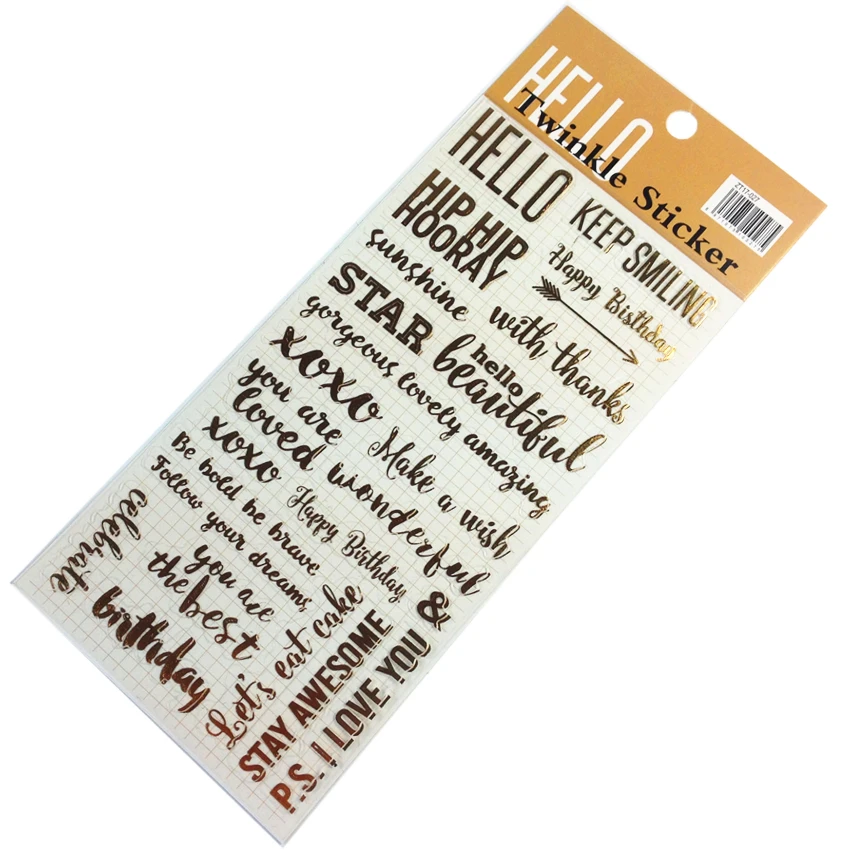 HELLO
Twinkle Sticker
ZT17-027
HELLO
KEEP SMILING
HIP HIP
HOORAY
Happy Birthday
sunshine
with thanks
STAR
hello
beautiful
gorgeous lovely amazing
xoxo
Make a wish
you are
loved
wonderful
xoxo
Happy Birthday
Be bold be brave
Follow your dreams
&
celebrate
you are
the best
birthday
Let's eat cake
STAY AWESOME
P.S. I LOVE YOU